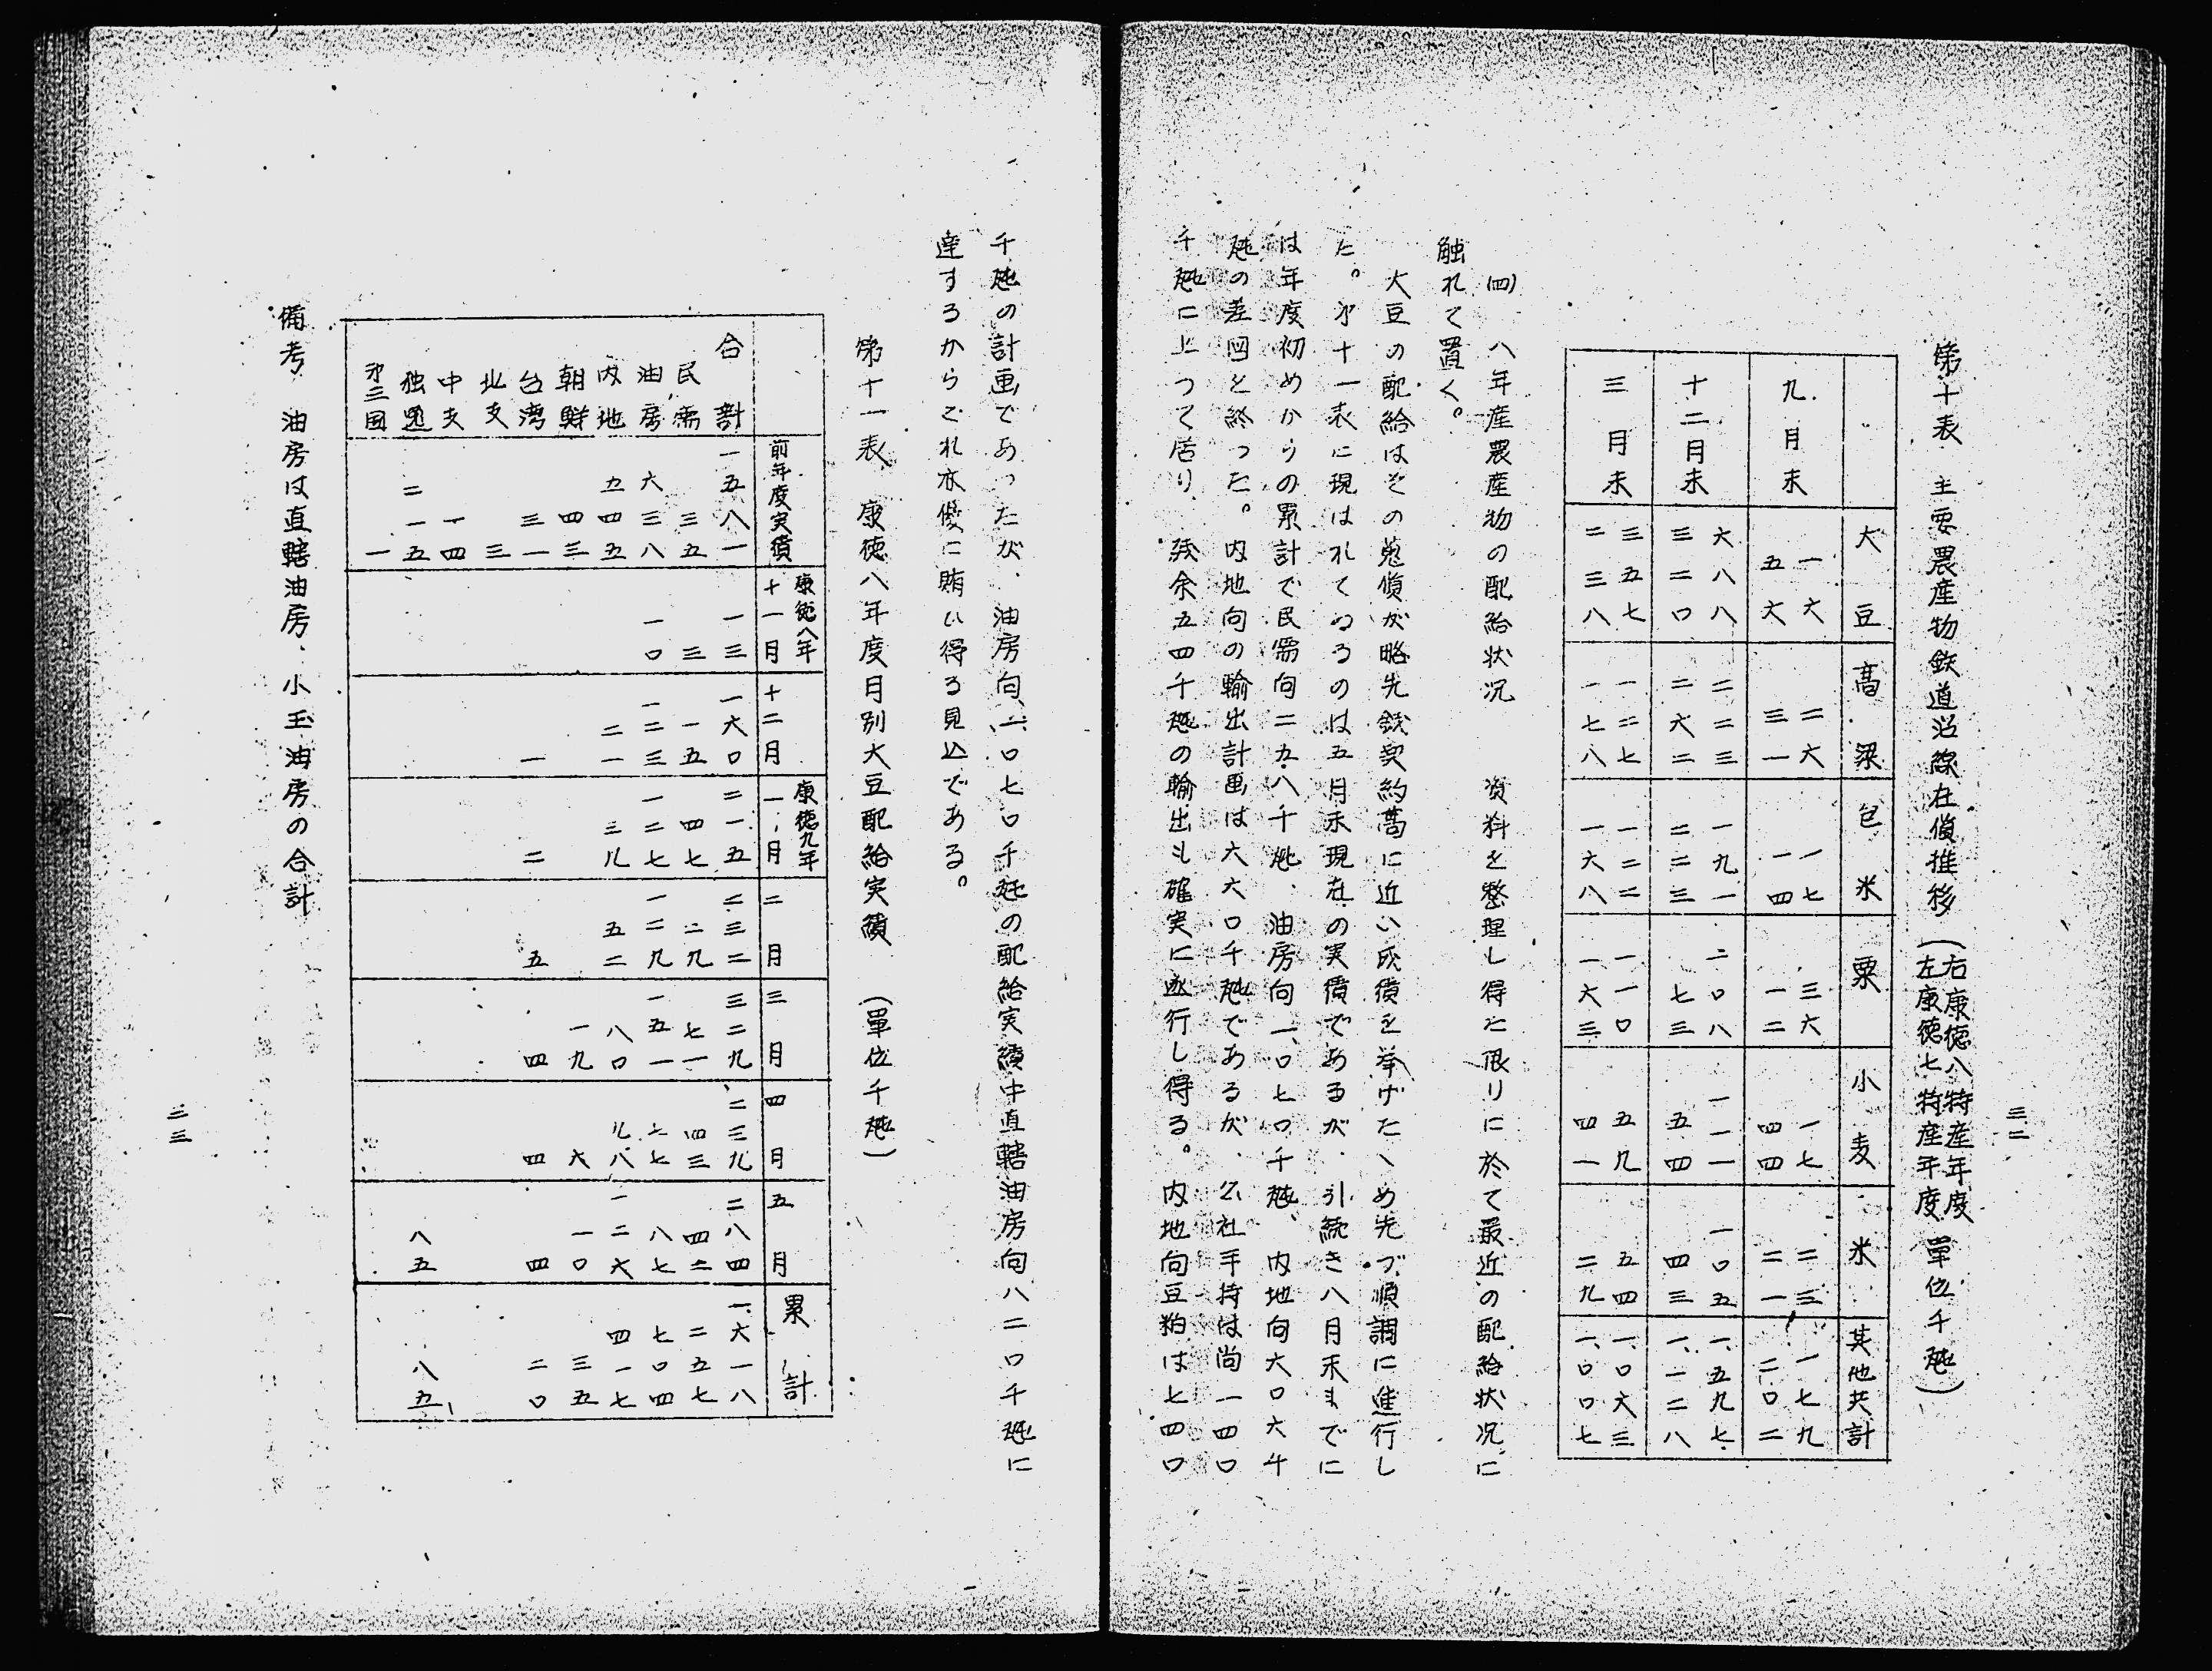 三二
第十表　主要農産物鉄道沿線在貨推移（右康徳八特産年度　左康徳七特産年度　單位千瓲）
大豆　高粱　包米　粟　小麦　米　其他共計
九月末　一六　二六　一七　三六　一七　二三　一七九
五六　三一　一四　一二　四四　二一　二〇二
十二月末　六八八　二二三　一九一　二〇八　一一一　一〇五　一、五九七
三二〇　二六二　二二三　七三　五四　四三　一、一二八
三月末　三五七　一二七　一二二　一一〇　五九　五四　一、〇六三
二三八　一七八　一六八　一六三　四一　二九　一、〇〇七
(四)　八年産農産物の配給状況　　資料を整理し得た限りに於て最近の配給状況に
触れて置く。
大豆の配給はその蒐貨が略先銭契約高に近い成績を挙げたゝめ先づ順調に進行し
た。才十一表に現はれてゐるのは五月末現在の実績であるが、引続き八月末までに
は年度初めからの累計で民需向二九八千瓲、油房向一、〇七〇千瓲、内地向六〇六千
瓲の差図を終つた。内地向の輸出計画は六六〇千瓲であるが、公社手持は尚一四〇
千瓲に上つて居り、残余五四千瓲の輸出も確実に遂行し得る。内地向豆粕は七四〇
千瓲の計画であつたが、油房向一、〇七〇千瓲の配給実績中直轄油房向八二〇千瓲に
達するからこれ亦優に賄ひ得る見込である。
第十一表　康徳八年度月別大豆配給実績　（單位千瓲）
前年度実績　康徳八年十一月　十二月　康徳九年一月　二月　三月　四月　五月　累計
合計　一五八一　一三三　一六〇　二一五　二三二　三二九　二三九　二八四　一、六一八
民需　三五　三　一五　四七　二九　七一　四三　四二　二五七
油房　六三八　一〇　一二三　一二七　一二九　一五一　六七　八七　七〇四
内地　五四五　二一　三九　五二　八〇　九八　一二六　四一七
朝鮮　四三　一九　六　一〇　三五
台湾　三一　一　二　五　四　四　四　二〇
北支　三
中支　一四
独逸　二一五　八五　八五
才三国　一
備考　油房は直轄油房、小玉油房の合計
三三